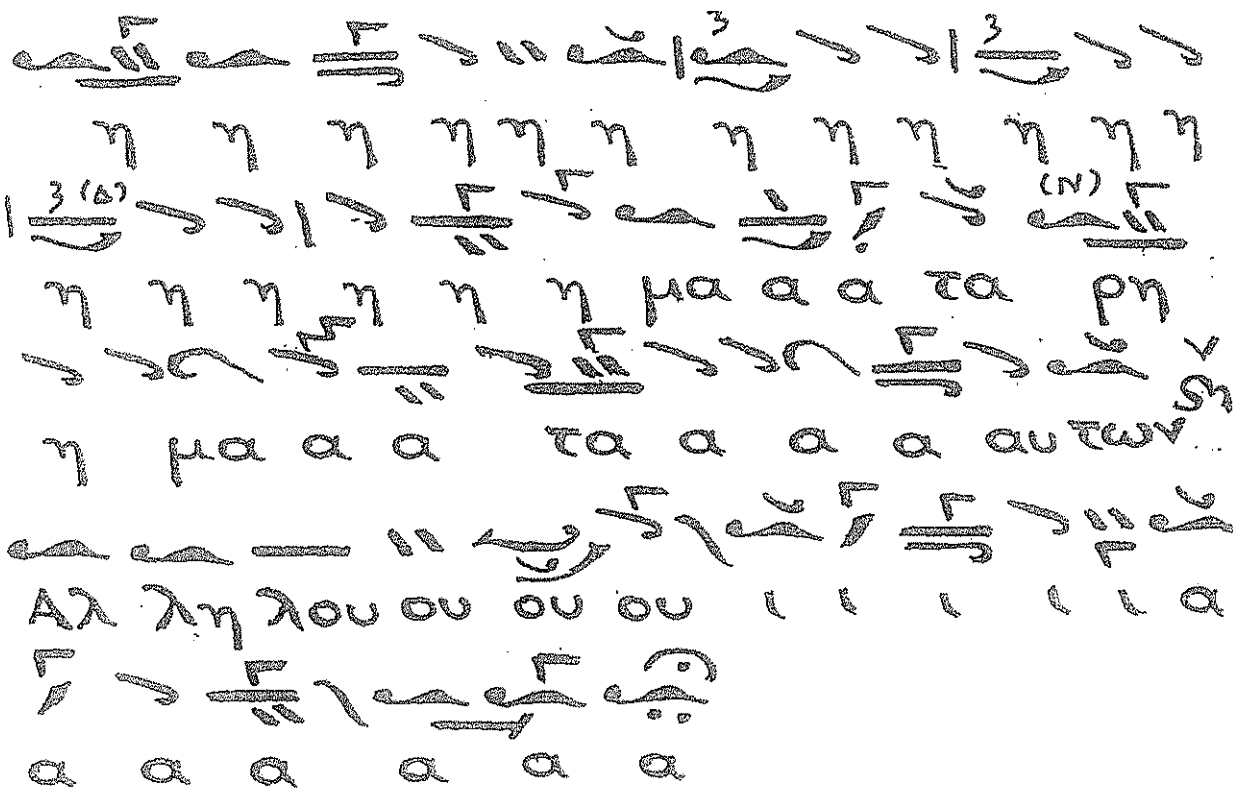 3 3
η η η η η η η η η η η η
3 (Δ) (Ν)
η η η η η η μα α α τα ρη
η μα α α τα α α α αυ των
Αλ λη λου ου ου ου ι ι ι ι ι α
α α α α α α